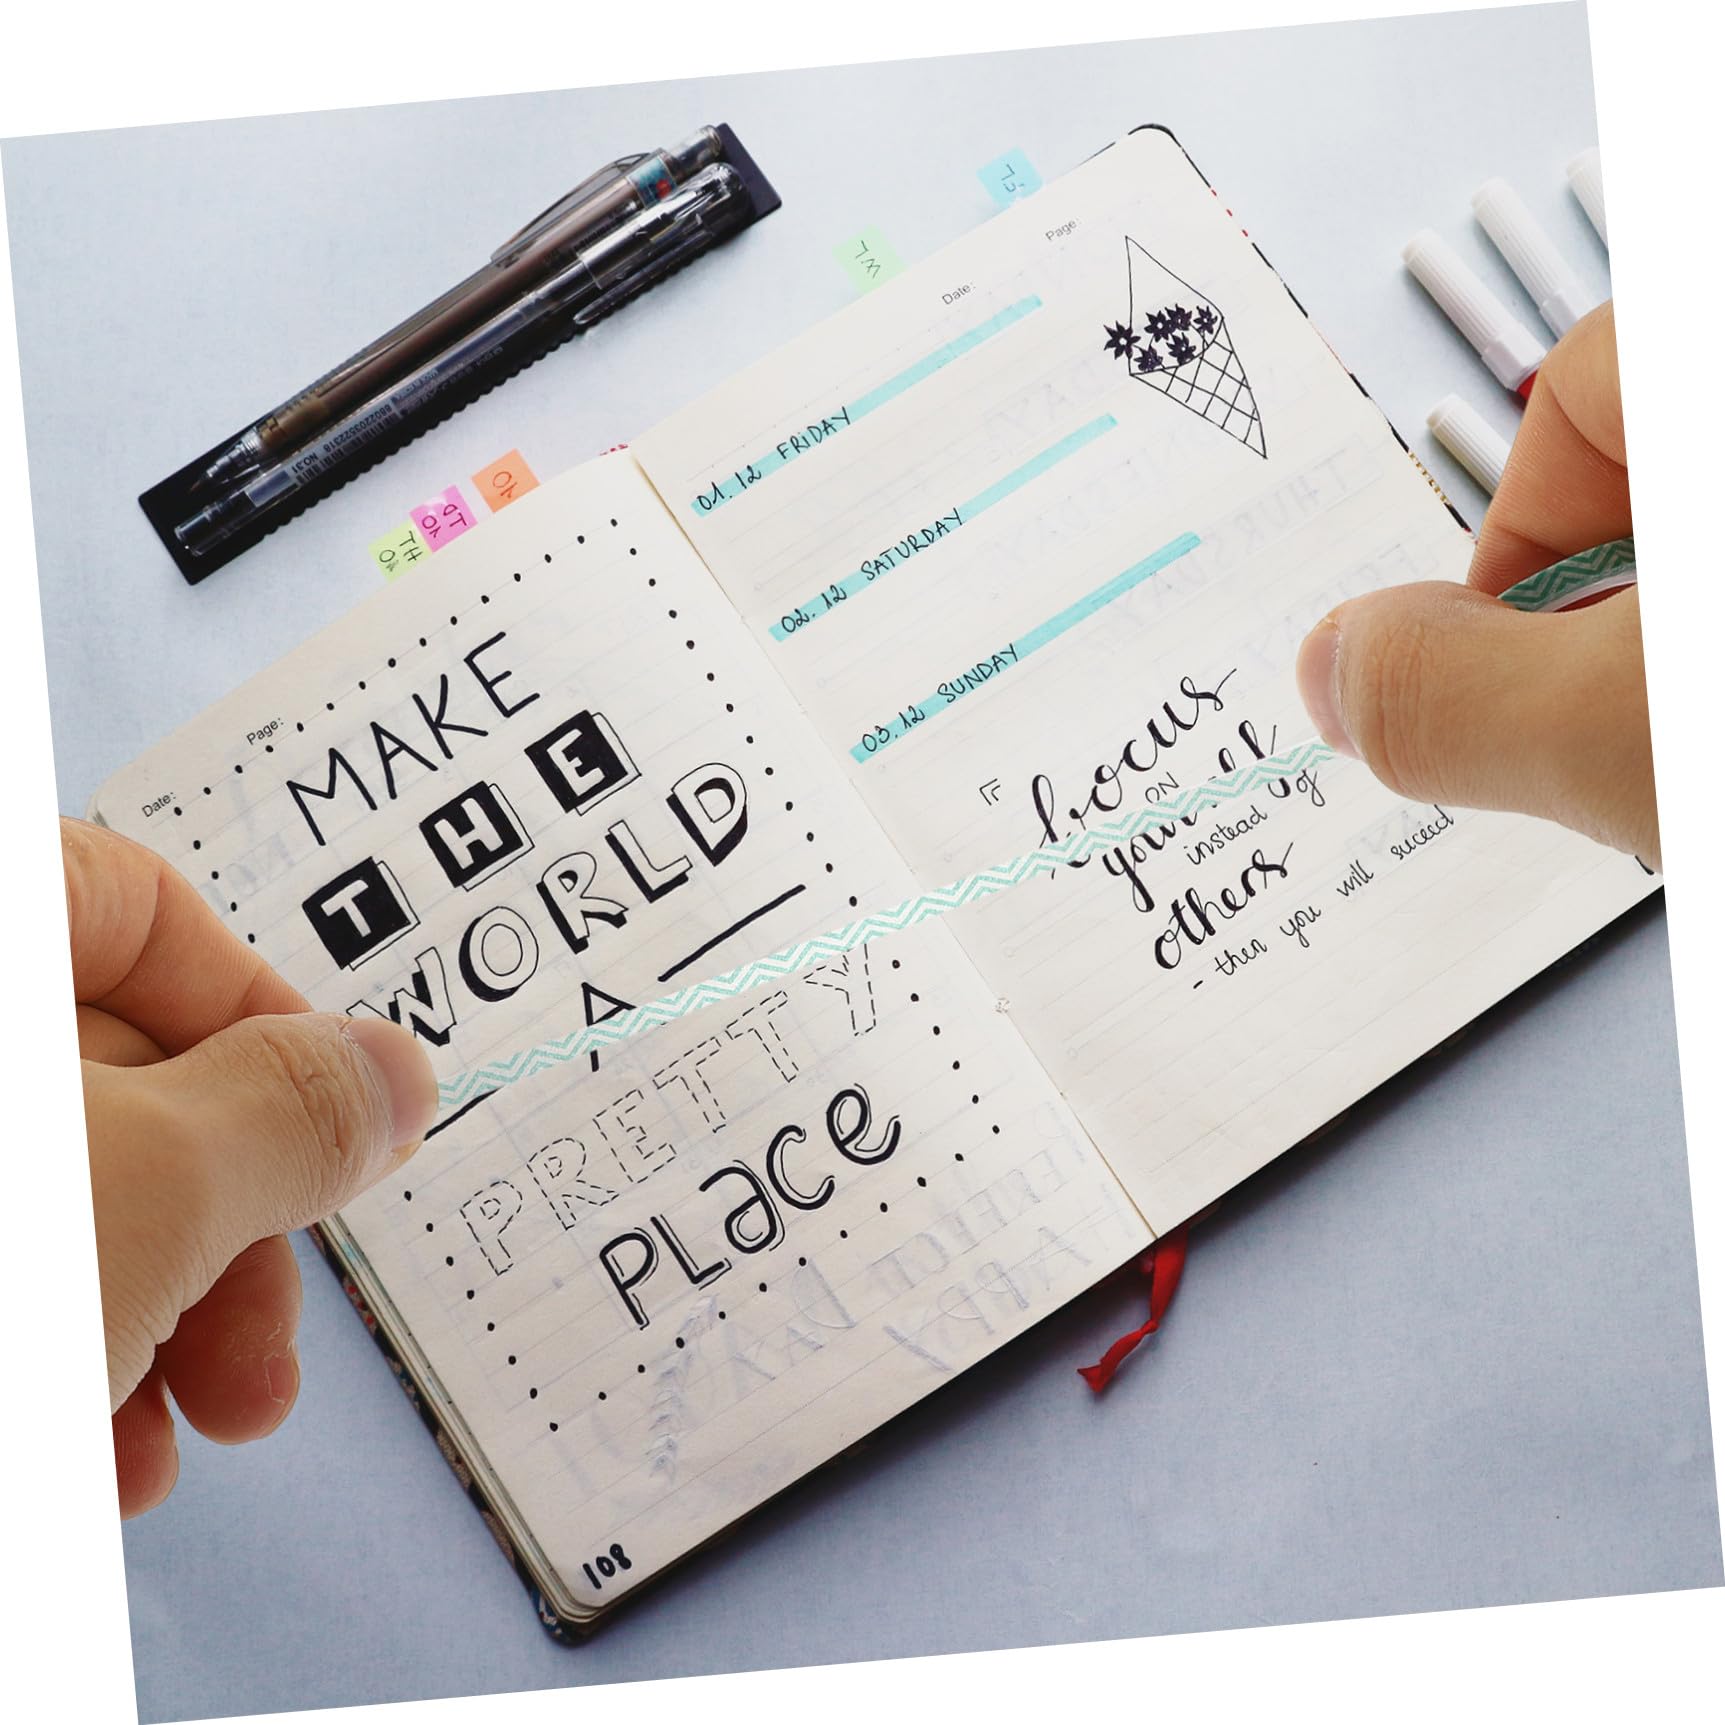 Date:
Page:
MAKE
THE
WORLD
A
PRETTY
PLace
108
Date:
Page:
01.12 FRiDAY
02.12 SATURDAY
03.12 SUNDAY
focus
ON
yourself
instead of
others
- then you will succeed
TH
TD
8802203522318 NO.31